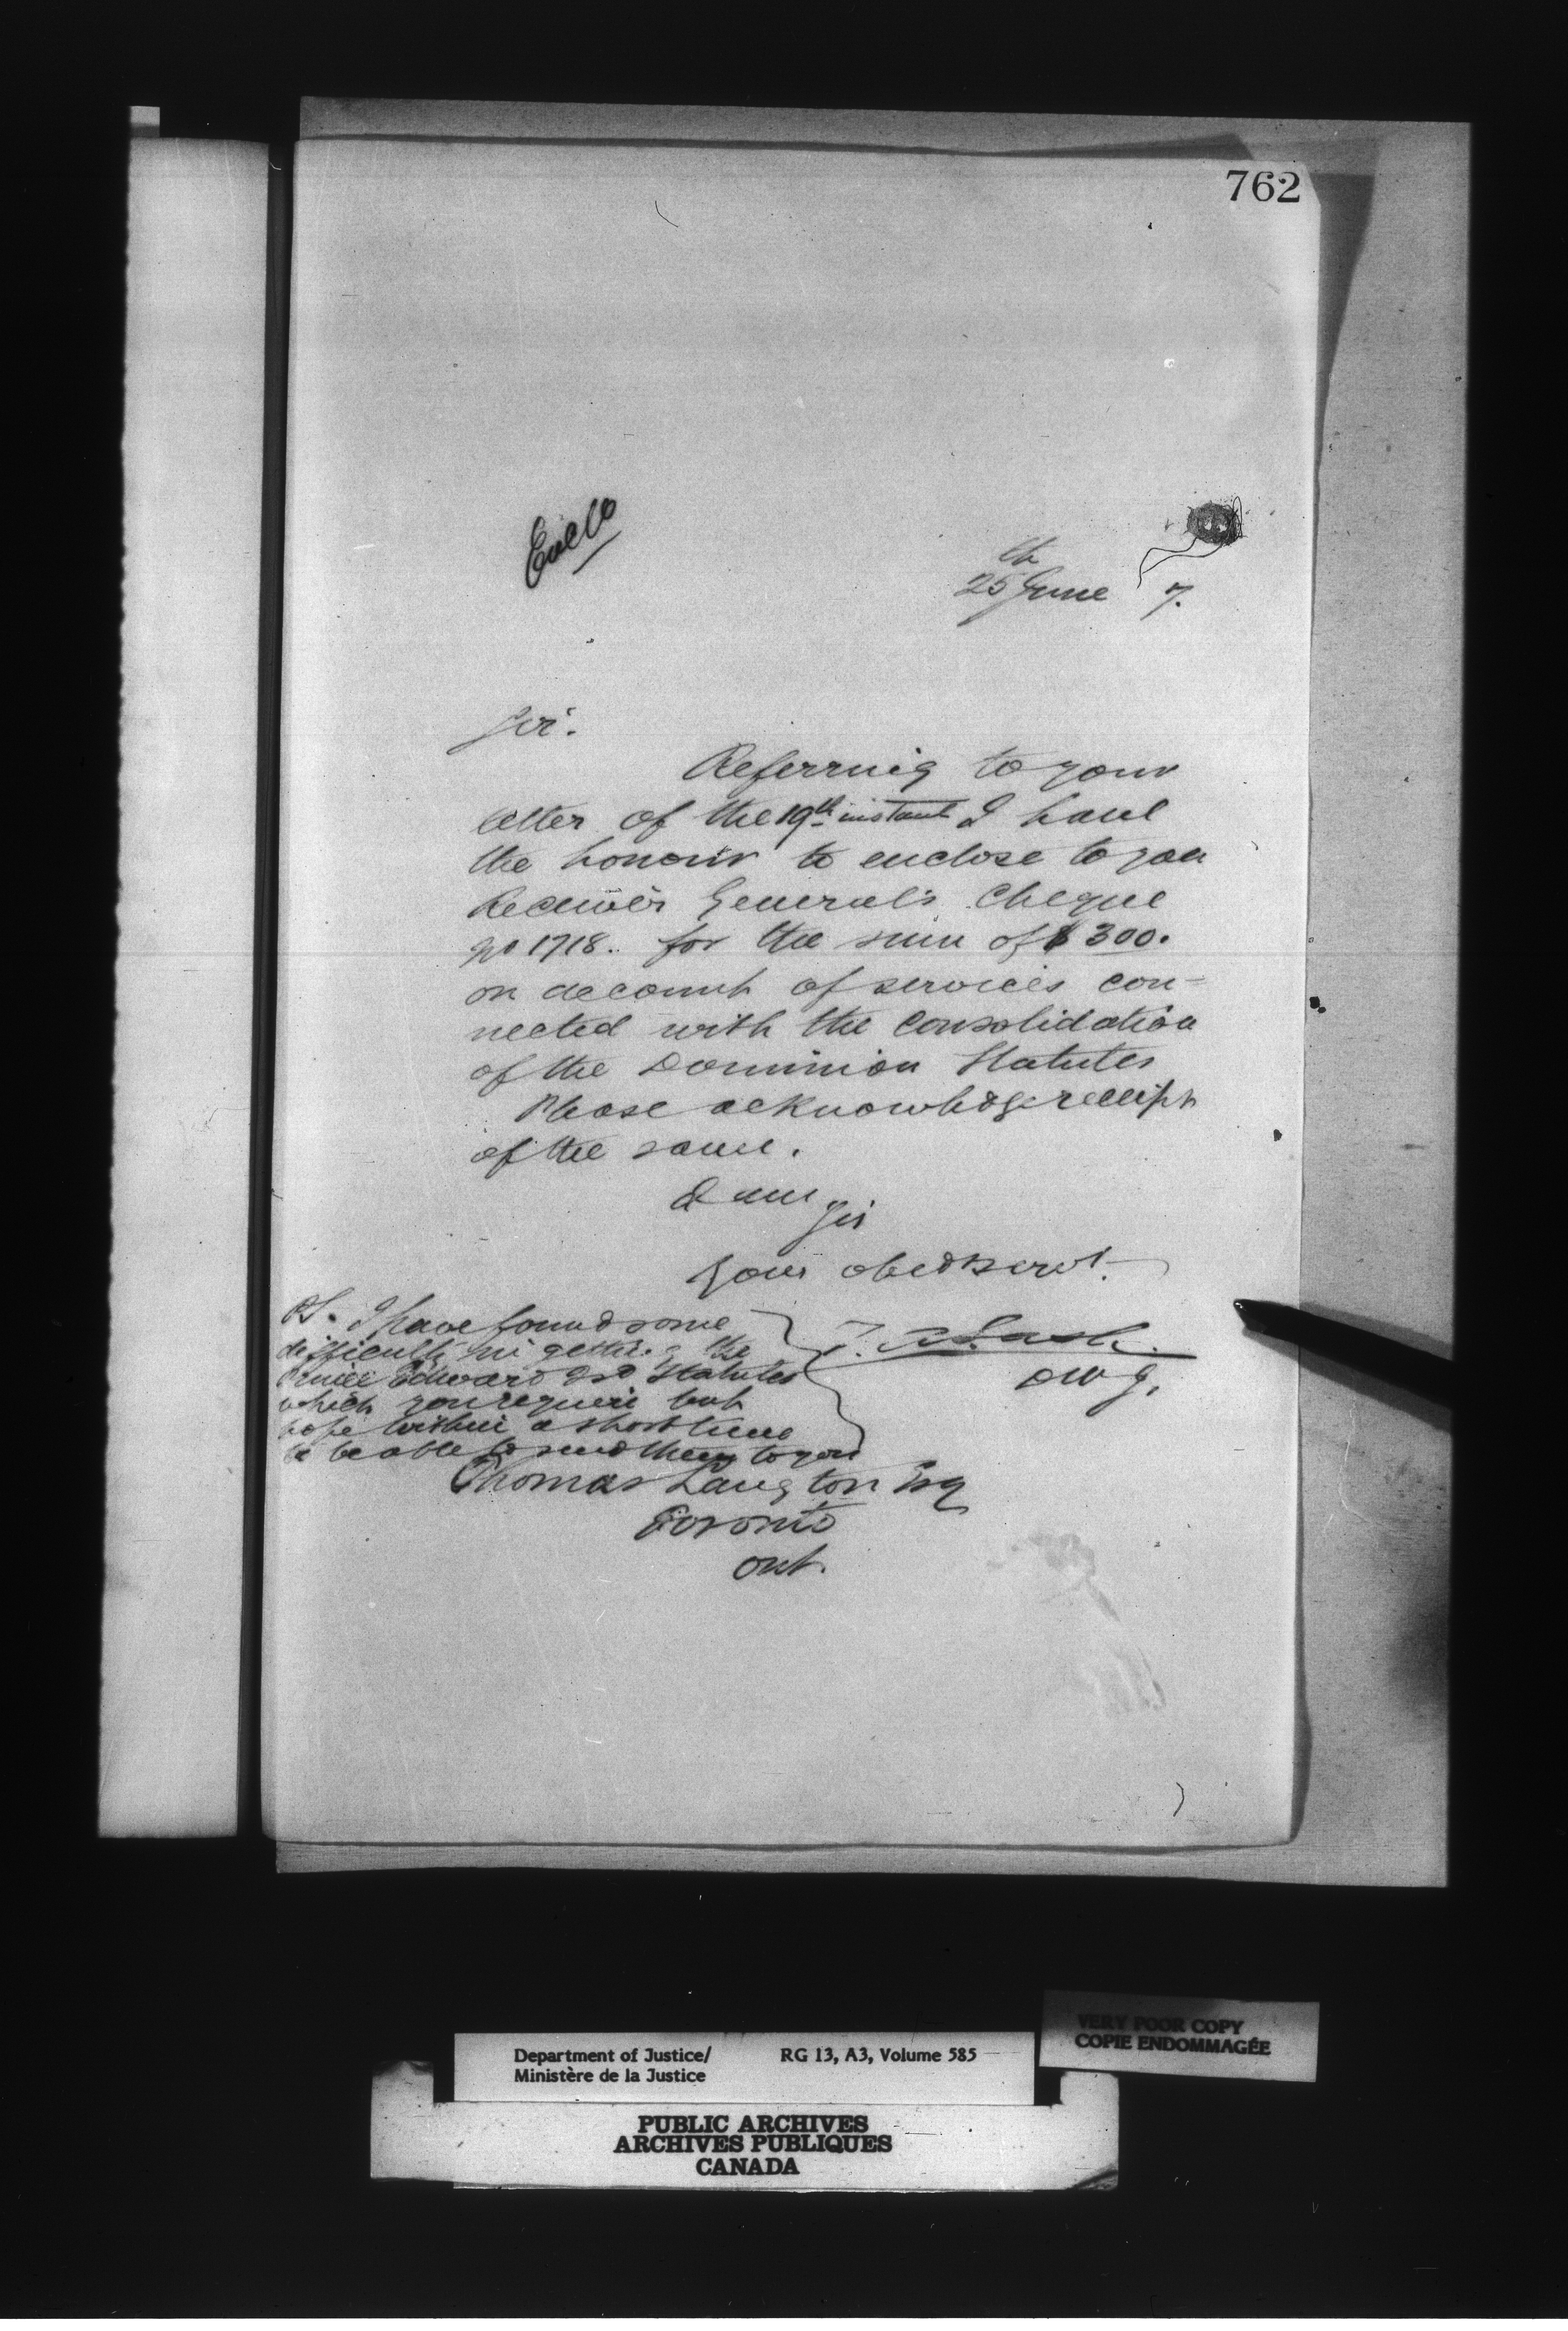 762
Enclo
25th June 7.
Sir.
Referring to your
letter of the 19th instant I have
the honour to enclose to you
Receiver General's Cheque
No 1718. for the sum of $300.
on account of services con-
nected with the Consolidation
of the Dominion Statutes
Please acknowledge receipt
of the same.
I am
Sir
Your obedt servt.
PS. I have found some
difficulty in getting the
Prince Edward Isd Statutes
which you require but
hope within a short time
to be able to send them to you
Z. A. Lash.
DMJ.
Thomas Langton Esq
Toronto
Ont.
VERY POOR COPY
COPIE ENDOMMAGÉE
Department of Justice/ RG 13, A3, Volume 585
Ministère de la Justice
PUBLIC ARCHIVES
ARCHIVES PUBLIQUES
CANADA